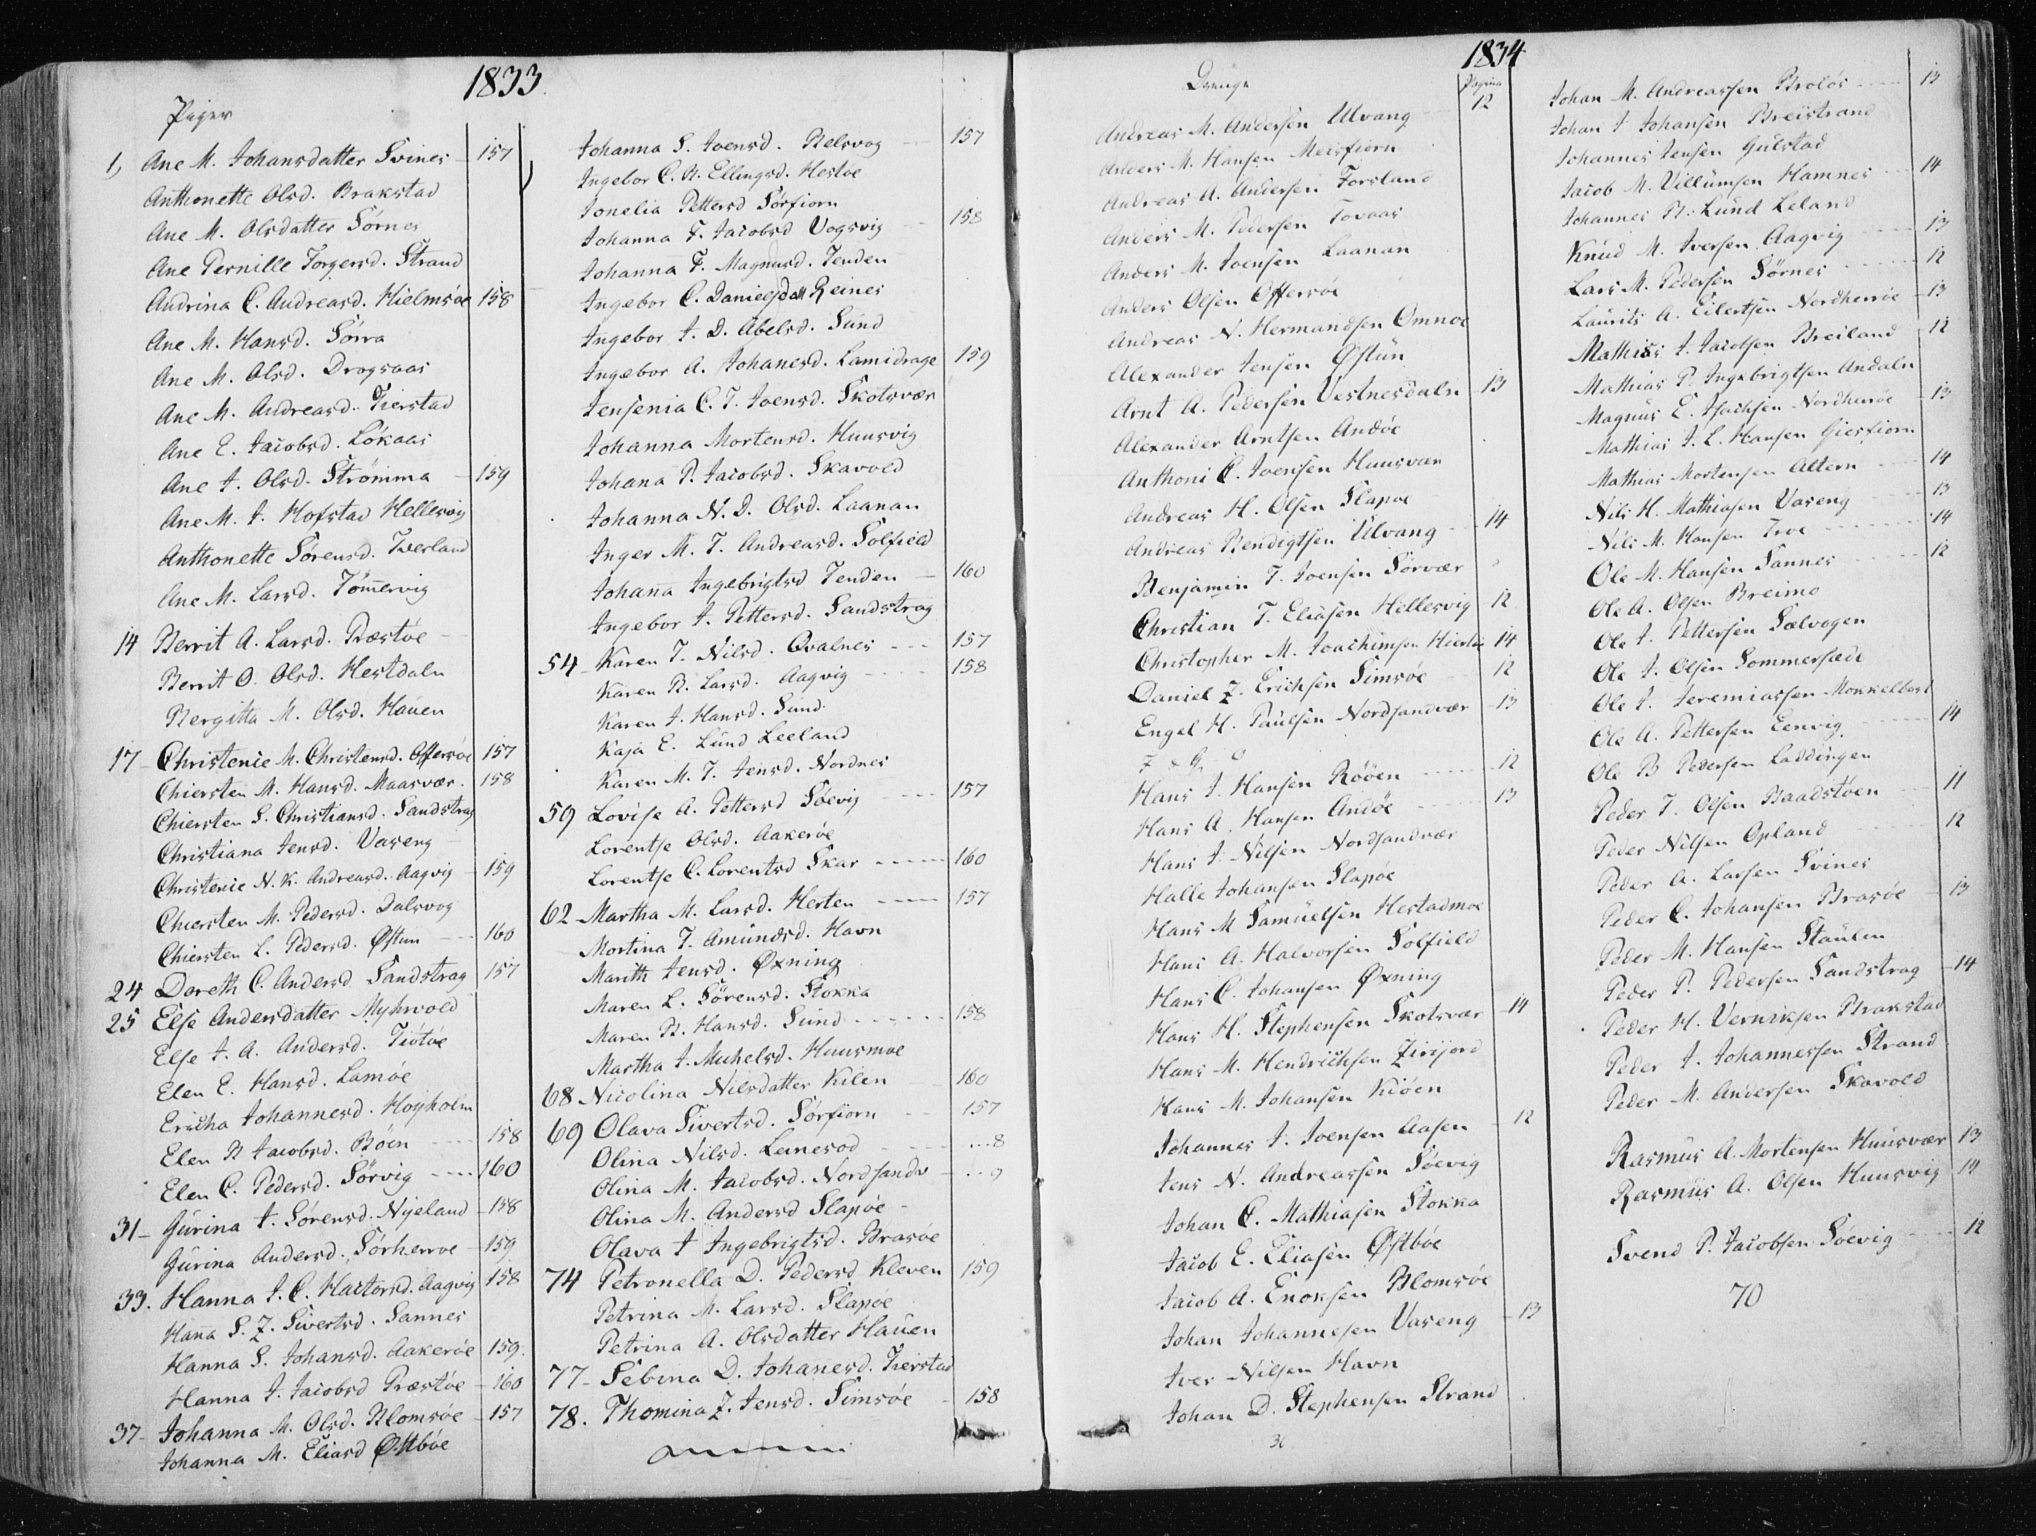 1833
Piger
1, Ane M. Johansdatter Svines 157
Anthonette Olsd. Brakstad
Ane M. Olsdatter Sörnes
Ane Pernille Torgersd. Strand
Andrina C. Andreasd. Hielmsöe 158
Ane M. Hansd. Sörra
Ane M. Olsd. Drogsaas
Ane M. Andreasd. Tierstad
Ane E. Jacobsd. Lökaas
Ane J. Olsd. Strömma 159
Ane M. J. Hofstad Hellesvig
Anthonette Sörensd. Tverland
Ane M. Larsd. Tömervig
14 Berrit A. Larsd. Præstöe
Berrit O. Olsd. Hestdaln
Bergitta M. Olsd. Hauen
17 Christenie M. Christensd. Offersöe 157
Chiersten M. Hansd. Maasvær. 158
Chiersten S. Christiansd. Sandstrag
Christiana Jensd. Vaseng
Christenie N. K. Andreasd. Aagvig 159
Chiersten M. Pedersd. Dalsvog
Chiersten L. Pedersd. Østun 160
24 Doreth C. Andersd Sandstrag 157
25 Else Andersdatter Myhrvold
Else J. A. Andersd. Tiötöe
Elen E. Hansd. Lamöe
Ericha Johannesd. Hoyholm
Elen B Jacobsd. Böen 158
Elen C. Pedersd. Sörvig 160
31 Gurina J. Sörensd. Nyeland 158
Gurina Andersd. Sörherroe 159
33. Hanna J. C. Hartorsd. Aagvig 158
Hana S. Z. Sivertsd. Sannes
Hanna S. Johansd. Aakeröe 159.
Hanna J. Jacobsd Præstöe 160
37 Johanna M. Olsd. Blomsöe 157
Johanna M. Eliasd Østböe
Johanna S. Joensd. Belsvog 157
Ingebor C. B. Ellingsd. Hestöe
Jonelia Pettersd Sörfiorn
Johanna F. Jacobsd Vogsvig 158
Johanna F. Magnusd. Tenden
Ingebor C. Danielsdatt Reines
Ingebor J. D. Abelsd. Sund
Ingebor A. Johanesd. Lamidrage 159
Jensenia C. T. Joensd. Skotsvær
Johanna Mortensd. Huusvig
Johana P. Jacobsd. Skavold
Johanna N. D. Olsd. Laanan
Inger M. T. Andreasd. Solfield
Johana Ingebrigtsd Tenden 160
Ingebor J. Pettersd. Sandstrag
54 Karen T. Nilsd. Qvalnes 157
Karen B. Larsd. Aagvig 158
Karen J. Hansd. Sund
Kaja E. Lund Leeland
Karen M. T. Jensd. Nordnes
59 Lovise A. Pettersd Söevig 157
Lorentse Olsd. Aakeröe
Lorentse C. Lorentsd Skar 160
62 Martha M. Larsd. Hesten 157
Mortina T. Amundsd. Havn
Marith Jensd. Øxning
Maren L. Sörensd. Stokka
Maren B. Hansd. Sund 158
Martha J. Michelsd. Huusmoe
68 Nicolina Nilsdatter Kilen 160
69 Olava Sivertsd. Sörfiorn 157
Olina Nilsd. Leinesod 8
Olina M. Jacobsd. Nordsandv 9
Olina M. Andersd Slapöe
Olava J Ingebrigtsd. Brasöe
74 Petronella D. Pedersd Kleven 159
Petrina M. Larsd. Slapöe
Petrina A. Olsdatter Hauen
77 Sebina D. Johanesd. Tierstad
78. Thomina Z. Jensd. Simsöe 158
1834
Drenge Pagina
Andreas M. Andersen Ulvang 12
Anders M. Hansen Meisfiorn
Andreas A. Andersen Forsland
Anders M. Pedersen Tovaas
Anders M. Joensen Laanan
Anders Olsen Offersöe
Andreas N. Hermandsen Omnoe
Alexander Jensen Østun
Arnt A. Pedersen Vestnesdaln 13
Alexander Arntsen Andöe
Anthoni C. Joensen Huusvær
Andreas H. Olsen Slapoe
Andreas Bendigtsen Ulvang 14
Benjamin T. Joensen Sörvær
Christian T. Eliasen Hellesvig 12
Christopher M. Joachimsen 14
Daniel Z. Erichsen Simsöe 12
Engel H. Paulsen Nordsandvær 13
Hans J. Hansen Rööen 12
Hans A. Hansen Andöe 13
Hans J. Nilsen Nordsandvær
Halle Johansen Slapöe
Hans M Samuelsen Hestadmoe
Hans A. Halvorsen Solfield
Hans C. Johansen Øxning
Hans H. Stephensen Skotsvær 14
Hans M. Hendrichsen Zirijord
Hans M. Johansen Kiöen
Johannes J. Joensen Aasen 12
Jens N. Andreassen Söevig
Johan C. Mathiasen Stokka
Jacob E. Eliasen Østböe
Jacob A. Enoksen Blomsöe
Johan Johannesen Vaseng 13
Iver Nilsen Havn
Johan D. Stephensen Strand
36
Johan M. Andreassen Brolös 13
Johan J Johansen Breistrand
Johannes Jensen Gulstad
Jacob M. Villumsen Hamnes 14
Johannes B. Lund Leland
Knud M. Iversen Aagvig 13
Lars M. Pedersen Sörnes 12
Laurits A. Eilertsen Nordherröe 13
Mathias J. Jacobsen Breiland 12
Mathias P. Ingebrigtsen Andaln
Magnus E. Isachsen Nordherröe 13
Mathias J. L. Hansen Giesfiorn
Mathias Mortensen Altern 14
Nils H. Mathiasen Vaseng 13
Nils M. Hansen Troe 14
Ole M. Hansen Sannes 12
Ole A. Olsen Breimo
Ole J. Pettersen Sælvogen
Ole J. Olsen Sommersæde
Ole J. Jeremiassen Mokkelbost
Ole A. Pettersen Eenvig 14
Ole B Pedersen Laddingen
Peder T. Olsen Baadstöen 11
Peder Nilsen Opland 12
Peder A. Larsen Svines
Peder C. Johansen Brasöe 13
Peder M. Hansen Staulen
Peder P. Pedersen Sandstrag 14
Peder H. Verniksen Brakstad
Peder J. Johannessen Strand
Peder M. Andersen Skavold
Rasmus A. Mortensen Huusvær 13
Rasmus A. Olsen Huusvig 14
Svend P. Jacobsen Söevig 12
70